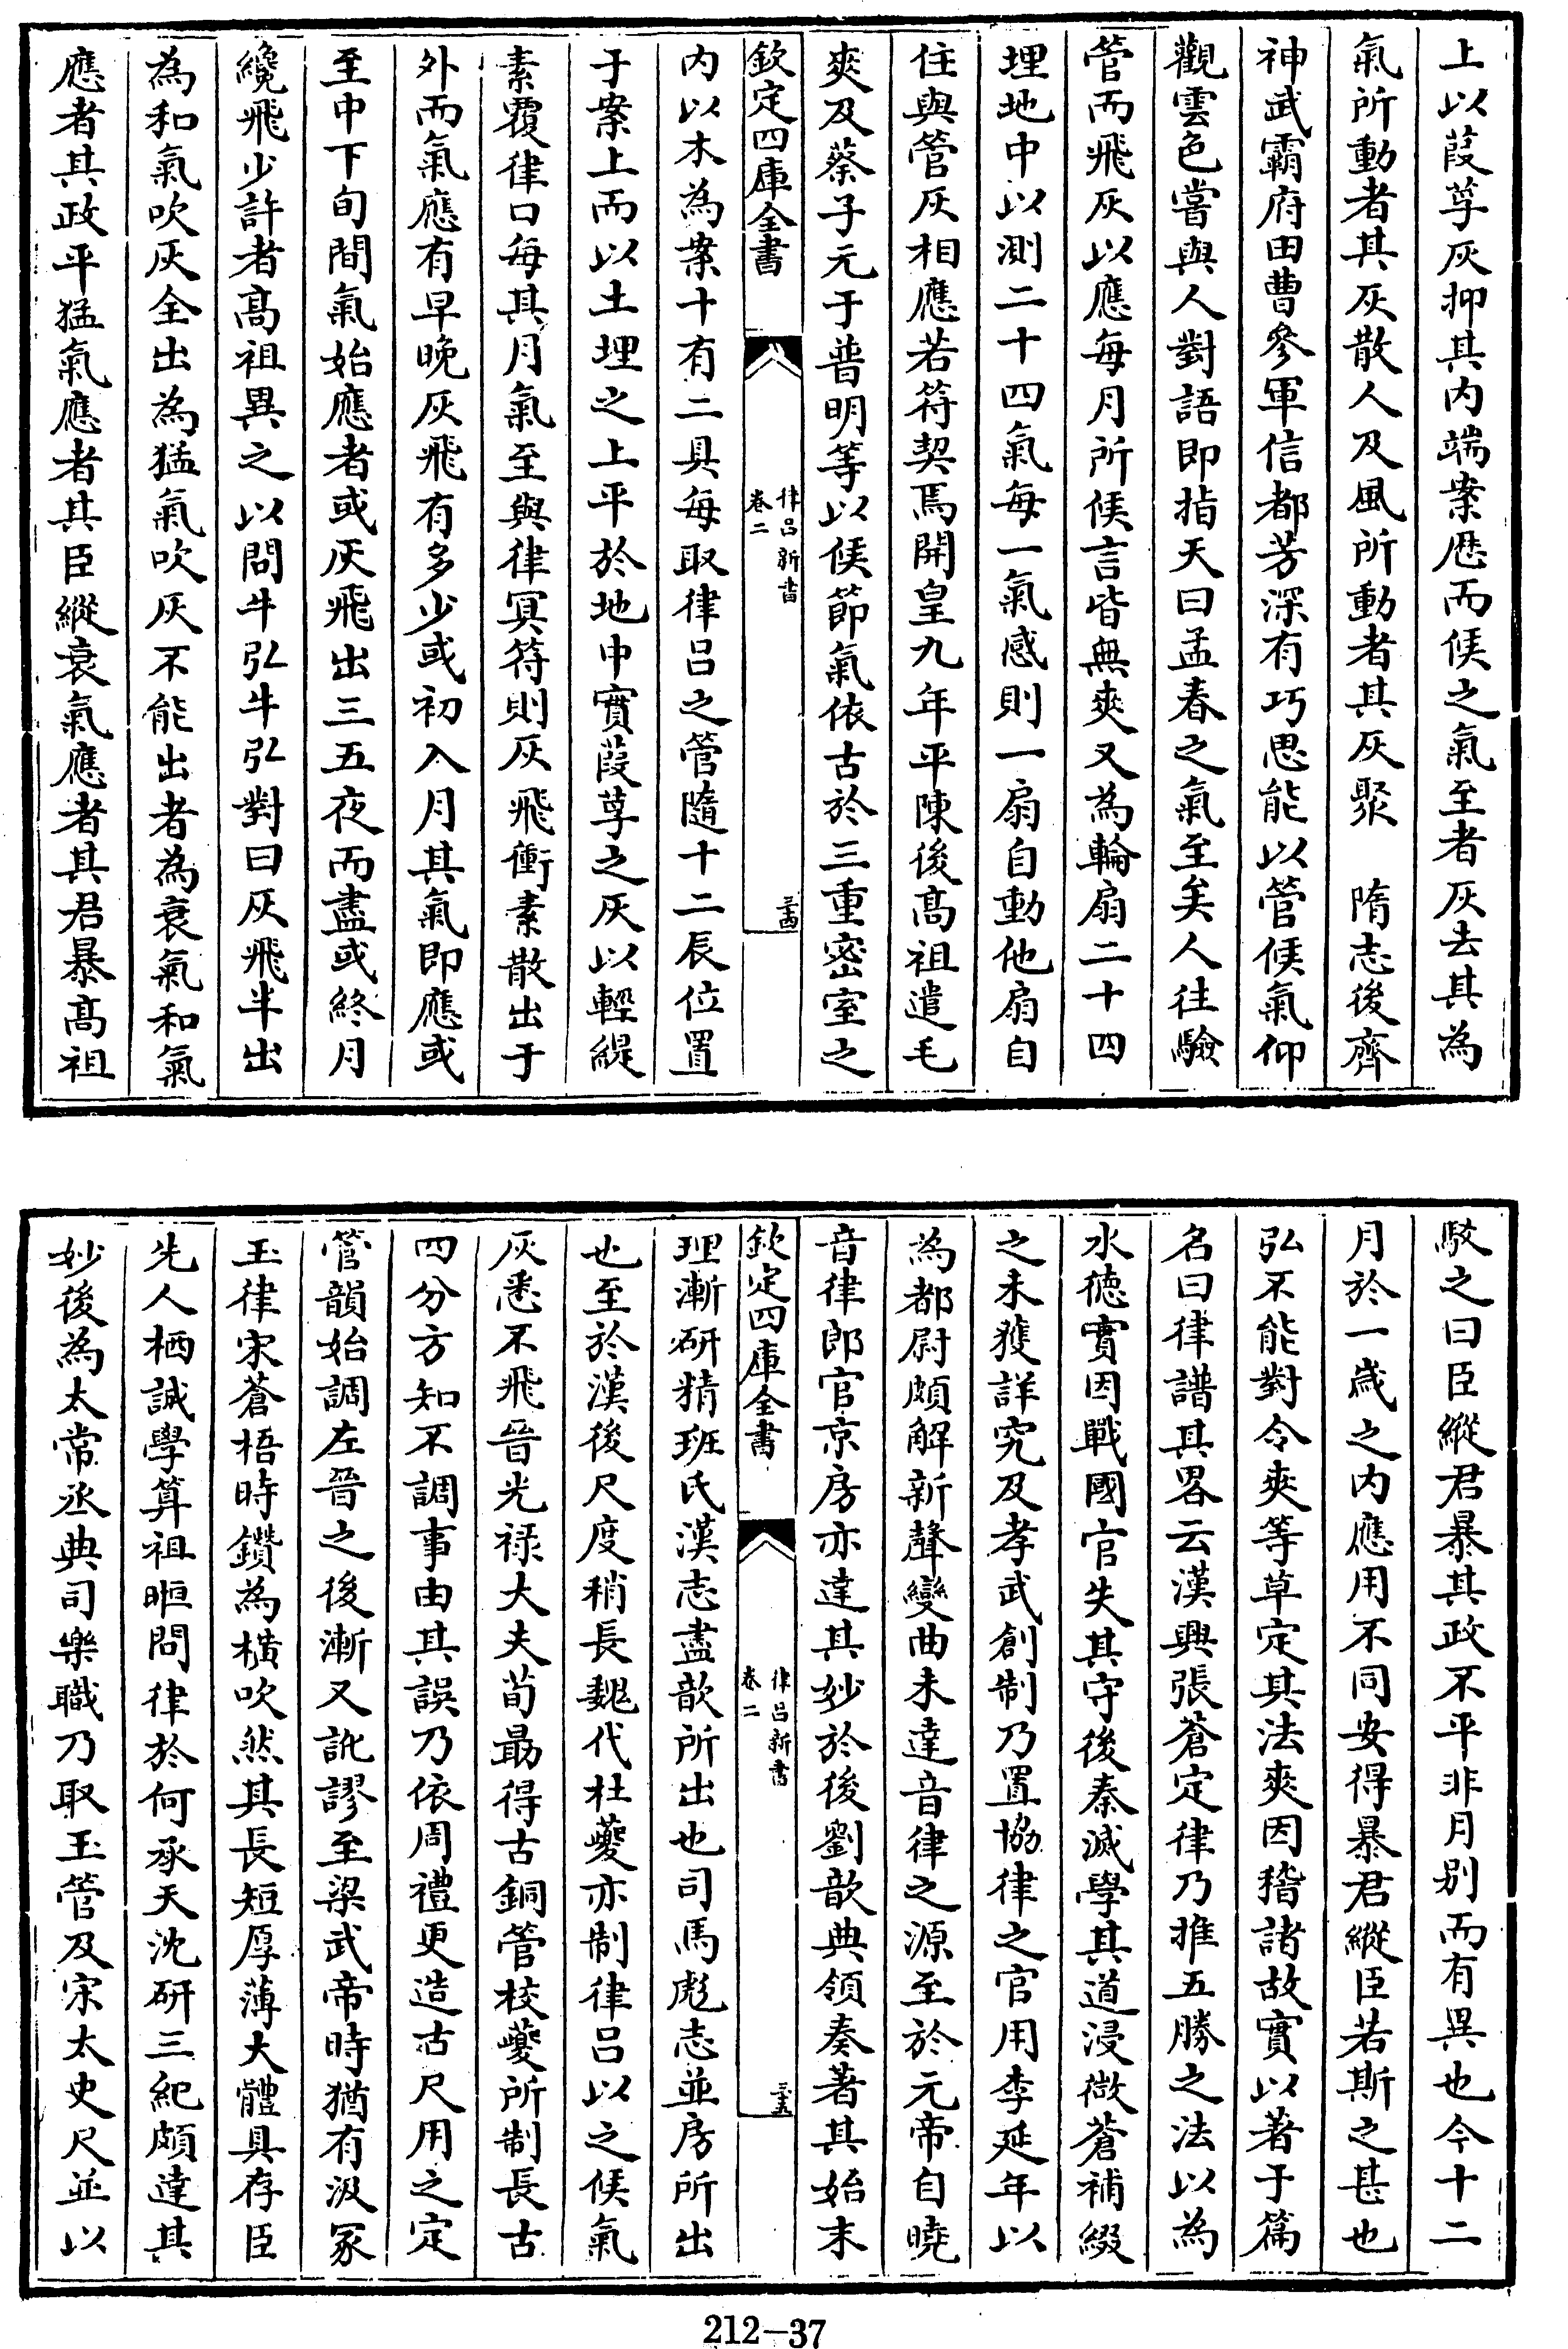 上以葭莩灰抑其内端案厯而候之氣至者灰去其為
氣所動者其灰散人及風所動者其灰聚　隋志後齊
神武霸府田曹參軍信都芳深有巧思能以管候氣仰
觀雲色嘗與人對語即指天曰孟春之氣至矣人往驗
管而飛灰以應每月所候言皆無爽又為輪扇二十四
埋地中以測二十四氣每一氣感則一扇自動他扇自
住與管灰相應若符契焉開皇九年平陳後髙祖遣毛
爽及蔡子元于普明等以候節氣依古於三重密室之
欽定四庫全書
律吕新書
卷二
三十四
内以木為案十有二具每取律吕之管隨十二辰位置
于案上而以土埋之上平於地中實葭莩之灰以輕緹
素覆律口每其月氣至與律冥符則灰飛衝素散出于
外而氣應有早晚灰飛有多少或初入月其氣即應或
至中下旬間氣始應者或灰飛出三五夜而盡或終月
纔飛少許者髙祖異之以問牛弘牛弘對曰灰飛半出
為和氣吹灰全出為猛氣吹灰不能出者為衰氣和氣
應者其政平猛氣應者其臣縱衰氣應者其君暴髙祖
駁之曰臣縱君暴其政不平非月别而有異也今十二
月於一歲之内應用不同安得暴君縱臣若斯之甚也
弘不能對令爽等草定其法爽因稽諸故實以著于篇
名曰律譜其畧云漢興張蒼定律乃推五勝之法以為
水徳實因戰國官失其守後秦滅學其道浸微蒼補綴
之未獲詳究及孝武創制乃置協律之官用李延年以
為都尉頗解新聲變曲未達音律之源至於元帝自曉
音律郎官京房亦達其妙於後劉歆典領奏著其始末
欽定四庫全書
律吕新書
卷二
三十五
理漸研精班氏漢志盡歆所出也司馬彪志並房所出
也至於漢後尺度稍長魏代杜夔亦制律吕以之候氣
灰悉不飛晉光禄大夫荀勗得古銅管校夔所制長古
四分方知不調事由其誤乃依周禮更造古尺用之定
管韻始調左晉之後漸又訛謬至梁武帝時猶有汲冢
玉律宋蒼梧時鑽為横吹然其長短厚薄大體具存臣
先人栖誠學算祖暅問律於何承天沈研三紀頗達其
妙後為太常丞典司樂職乃取玉管及宋太史尺並以
212—37